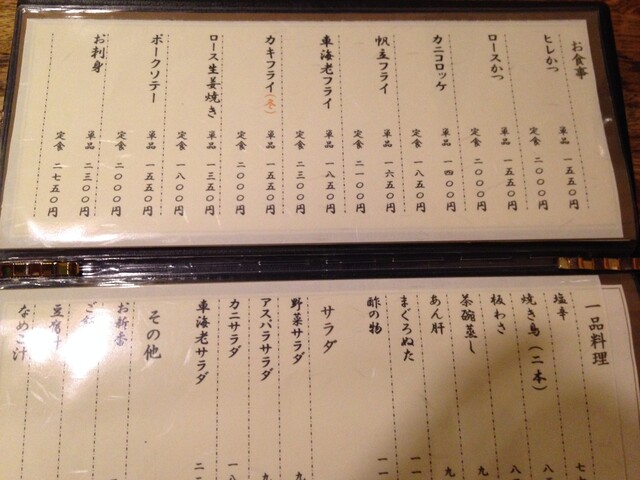 お食事
ヒレかつ
単品 一五五〇円
定食 二〇〇〇円
ロースかつ
単品 一五五〇円
定食 二〇〇〇円
カニコロッケ
単品 一四〇〇円
定食 一八五〇円
帆立フライ
単品 一六五〇円
定食 二一〇〇円
車海老フライ
単品 一八五〇円
定食 二三〇〇円
カキフライ(冬)
単品 一五五〇円
定食 二〇〇〇円
ロース生姜焼き
単品 一三五〇円
定食 一八〇〇円
ポークソテー
単品 一五五〇円
定食 二〇〇〇円
お刺身
単品 二三〇〇円
定食 二七五〇円
一品料理
塩辛
焼き鳥(二本)
板わさ
茶碗蒸し
あん肝
まぐろぬた
酢の物
サラダ
野菜サラダ
アスパラサラダ
カニサラダ
車海老サラダ
その他
お新香
なめこ汁